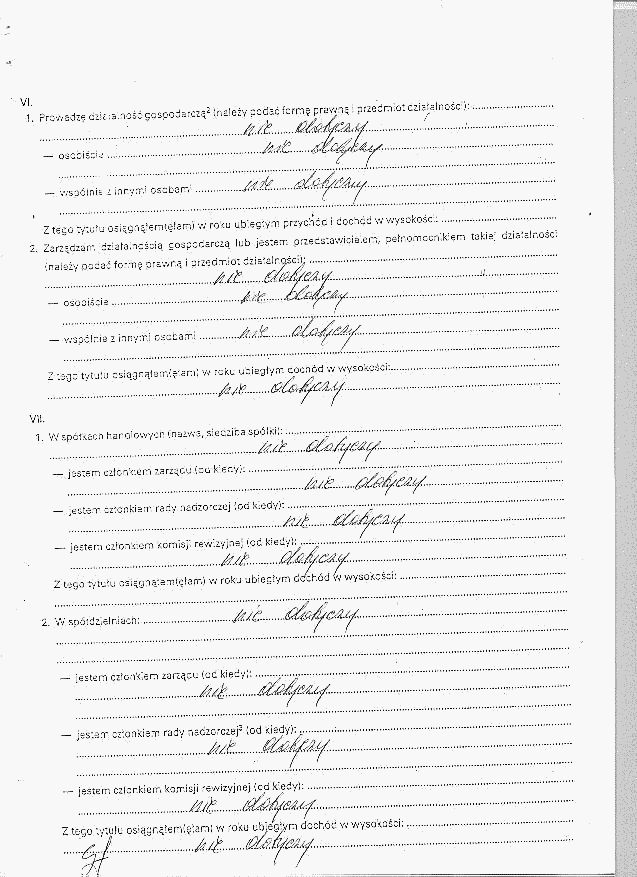 VI.
1. Prowadzę działalność gospodarczą² (należy podać formę prawną i przedmiot działalności):
nie dotyczy
— osobiście nie dotyczy
— wspólnie z innymi osobami nie dotyczy
Z tego tytułu osiągnąłem(ęłam) w roku ubiegłym przychód i dochód w wysokości:
2. Zarządzam działalnością gospodarczą lub jestem przedstawicielem, pełnomocnikiem takiej działalności
(należy podać formę prawną i przedmiot działalności):
nie dotyczy
— osobiście nie dotyczy
— wspólnie z innymi osobami nie dotyczy
Z tego tytułu osiągnąłem(ęłam) w roku ubiegłym dochód w wysokości:
nie dotyczy
VII.
1. W spółkach handlowych (nazwa, siedziba spółki):
nie dotyczy
— jestem członkiem zarządu (od kiedy):
nie dotyczy
— jestem członkiem rady nadzorczej (od kiedy):
nie dotyczy
— jestem członkiem komisji rewizyjnej (od kiedy):
nie dotyczy
Z tego tytułu osiągnąłem(ęłam) w roku ubiegłym dochód w wysokości:
2. W spółdzielniach: nie dotyczy
— jestem członkiem zarządu (od kiedy):
nie dotyczy
— jestem członkiem rady nadzorczej³ (od kiedy):
nie dotyczy
— jestem członkiem komisji rewizyjnej (od kiedy):
nie dotyczy
Z tego tytułu osiągnąłem(ęłam) w roku ubiegłym dochód w wysokości:
nie dotyczy